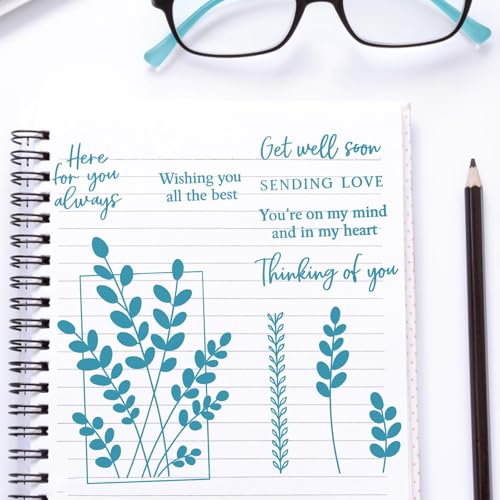 Here
for you
always
Wishing you
all the best
Get well soon
SENDING LOVE
You're on my mind
and in my heart
Thinking of you